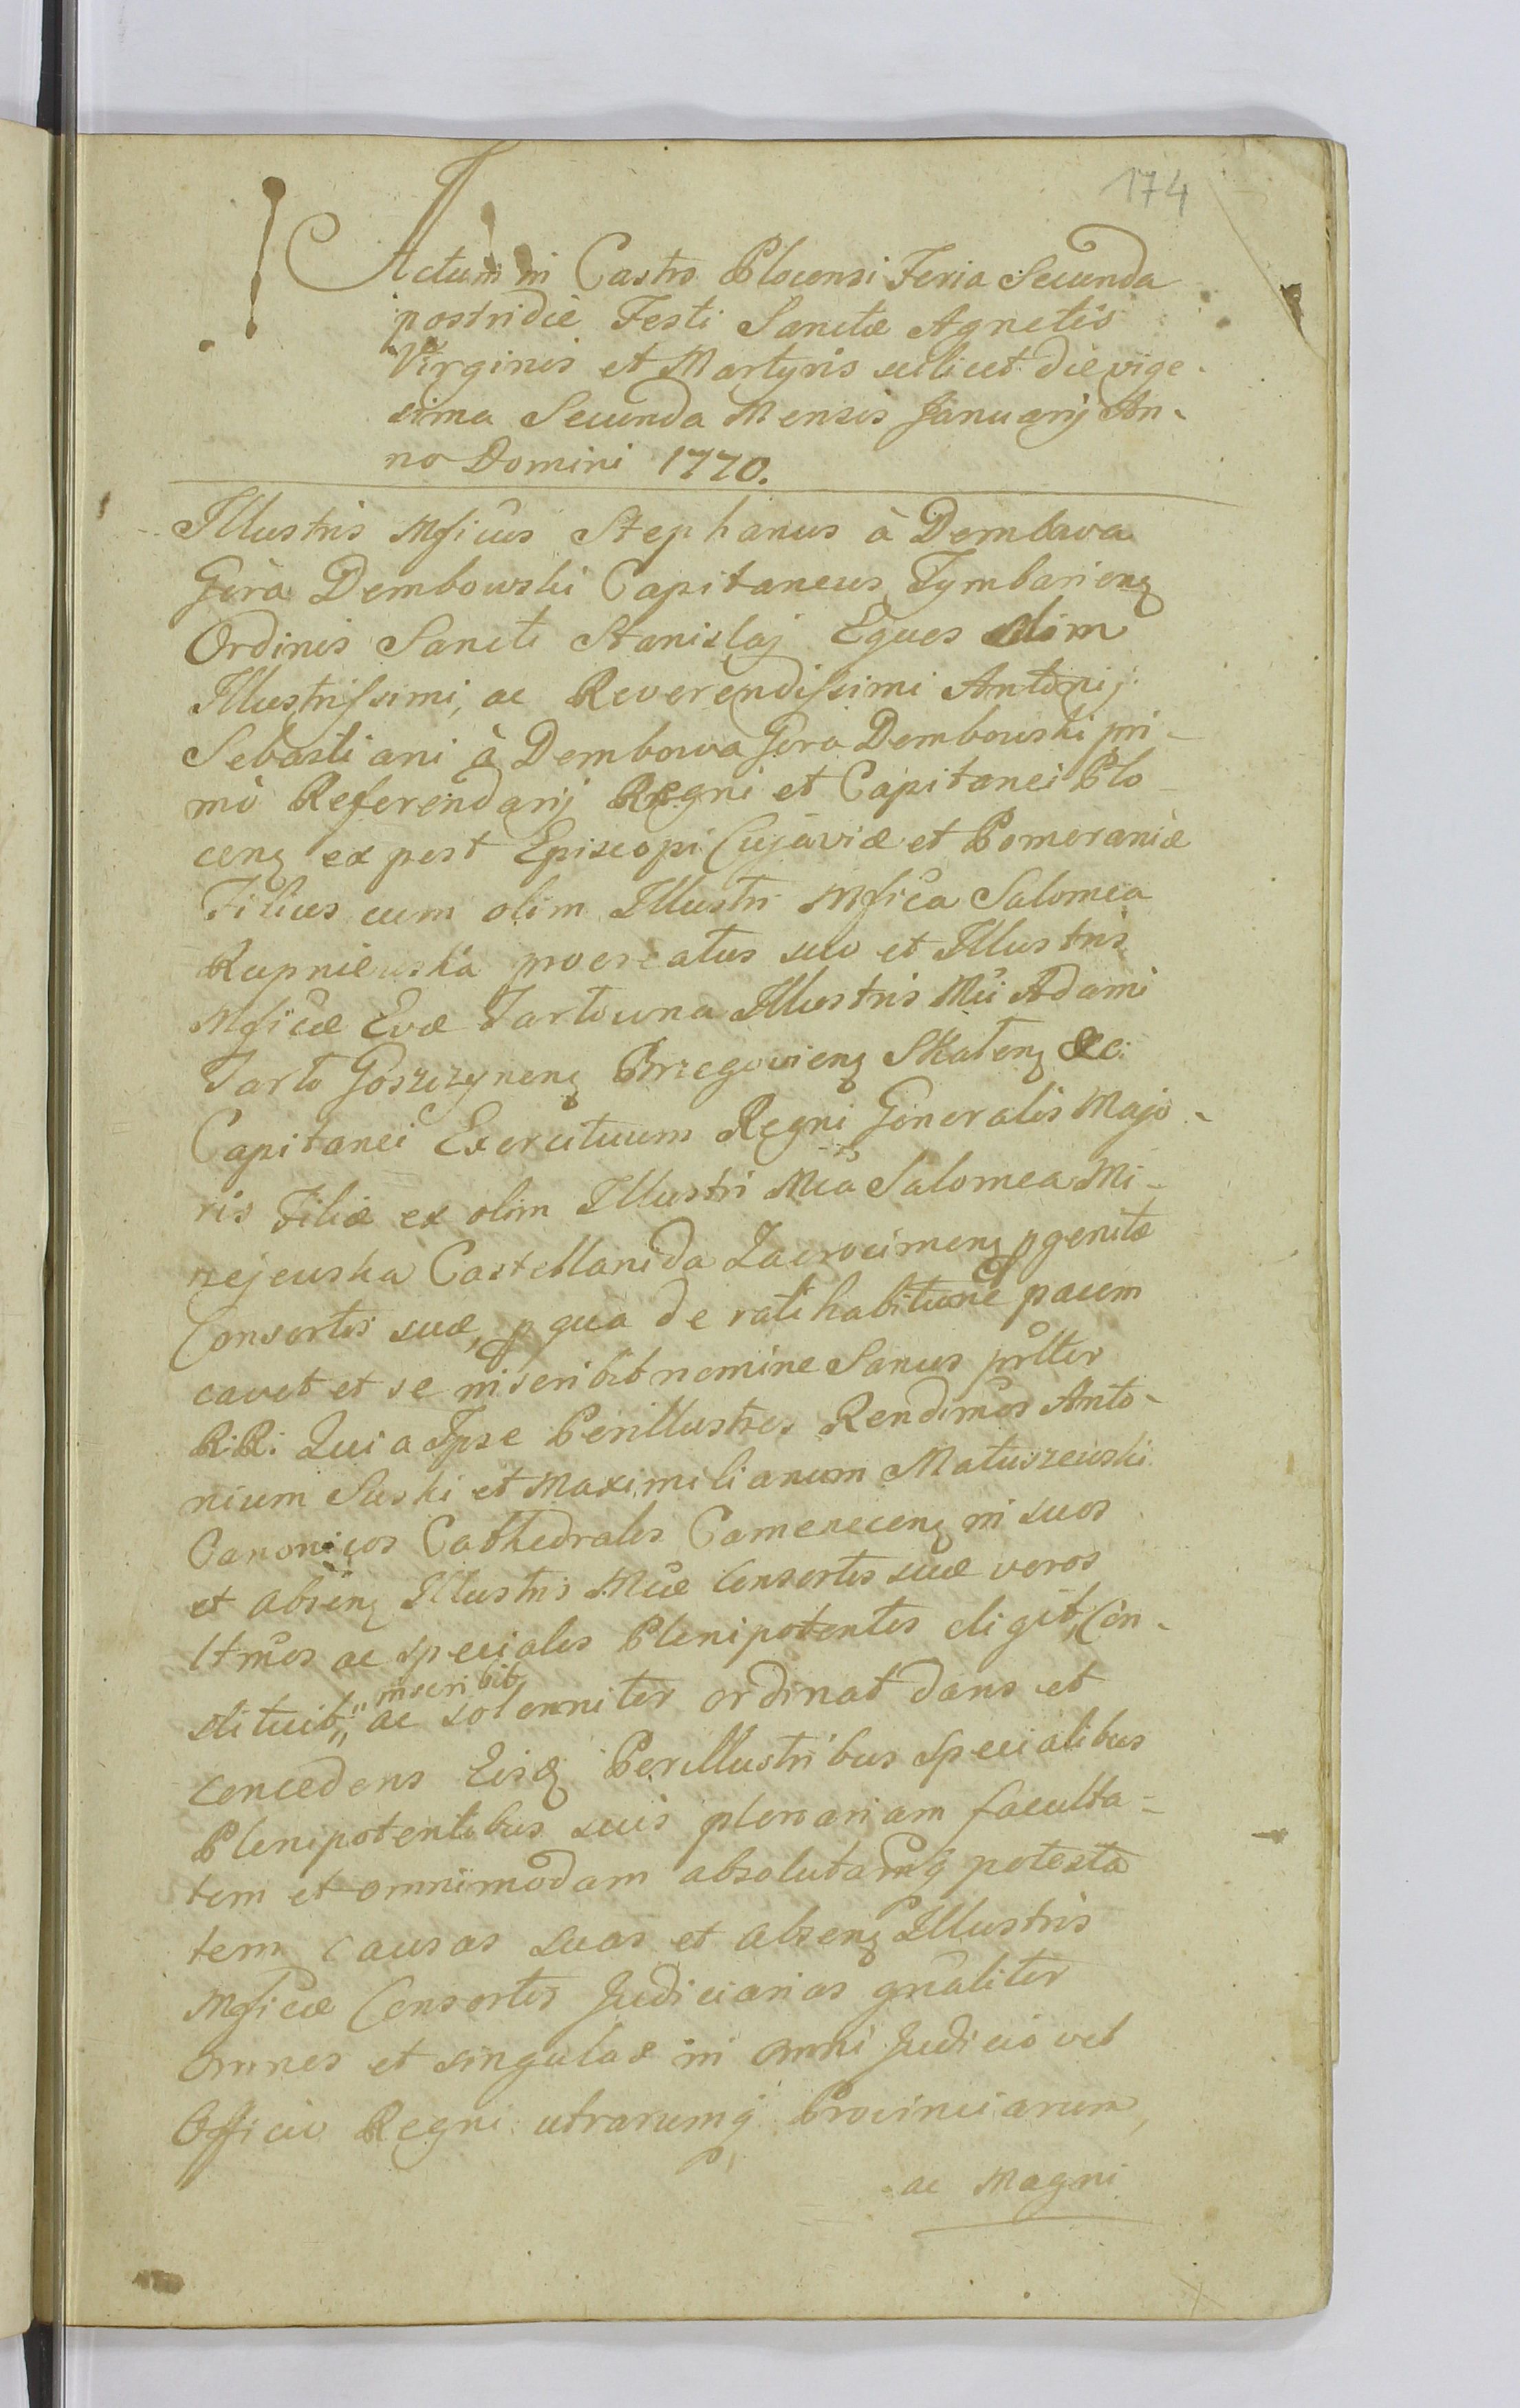 174
Actum in Castro Plocensi Feria Secunda
postridiè Festi Sanctæ Agnetis
Virginis et Martyris scilicet die vige-
sima Secunda Mensis Januarij An-
no Domini 1770.
Illustris Mficus Stephanus à Dembowa
Gòra Dembowski Capitaneus Tymbarienȝ
Ordinis Sancti Stanislaj Eques olim
Illustrissimi, ac Reverendissimi Antonij
Sebastiani à Dembowa Gora Dembowski pri-
mò Referendarij Regni et Capitanei Plo-
cenȝ ex post Episcopi Cujaviæ et Pomeraniæ
Filius cum olim Illustri Mfica Salomea
Rupniewska procreatus suo et Illustris
Mficæ Evæ Tarłowna Illustris Mci Adami
Tarło Goszczynenȝ Brzegovienȝ Skalenȝ &c:
Capitanei Exercituum Regni Generalis Majo-
ris Filiæ ex olim Illustri Mca Salomea Mi-
rzejewska Castellanida Zacrocimenȝ pgenitæ
Consortis suæ, p qua de ratihabitione pacem
cavet et se inscribit nomine Sanus prltter
R:R: Quia Ipse Perillustres Rendimos Anto-
nium Suski et Maximilianum Matuszewski
Canonicos Cathedrales Camenecenȝ in suos
et absenȝ Illustris Mcæ Consortis suæ veros
ltmos ac speciales Plenipotentes eligit, Con-
stituit, inscribit
ac solenniter ordinat dans et
concedens Eisdȝ Perillustribus specialibus
Plenipotentibus suis plenariam faculta-
tem et omnimodam absolutamq potesta
tem causas suas et absenȝ Illustris
Mficæ Consortis Judiciarias gnaliter
omnes et singulas in omni Judicio vel
Officio Regni utrarumq Provinciarum,
ac Magni